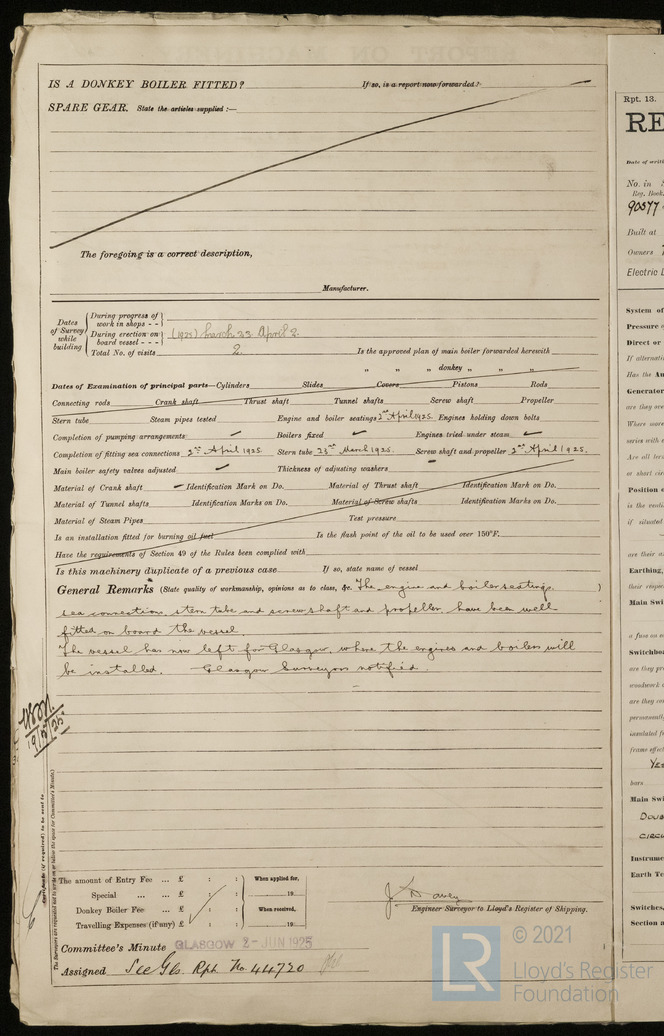 IS A DONKEY BOILER FITTED? If so, is a report now forwarded?
SPARE GEAR. State the articles supplied :—
The foregoing is a correct description,
Manufacturer.
Dates of Survey while building
During progress of work in shops - -
During erection on board vessel - - - (1925) March 23 April 2
Total No. of visits 2. Is the approved plan of main boiler forwarded herewith
" " donkey " " "
Dates of Examination of principal parts—Cylinders Slides Covers Pistons Rods
Connecting rods Crank shaft Thrust shaft Tunnel shafts Screw shaft Propeller
Stern tube Steam pipes tested Engine and boiler seatings 2nd April 1925. Engines holding down bolts
Completion of pumping arrangements Boilers fixed Engines tried under steam
Completion of fitting sea connections 2nd April 1925 Stern tube 23rd March 1925. Screw shaft and propeller 2nd April 1925.
Main boiler safety valves adjusted Thickness of adjusting washers
Material of Crank shaft Identification Mark on Do. Material of Thrust shaft Identification Mark on Do.
Material of Tunnel shafts Identification Marks on Do. Material of Screw shafts Identification Marks on Do.
Material of Steam Pipes Test pressure
Is an installation fitted for burning oil fuel Is the flash point of the oil to be used over 150°F.
Have the requirements of Section 49 of the Rules been complied with
Is this machinery duplicate of a previous case If so, state name of vessel
General Remarks (State quality of workmanship, opinions as to class, &c. The engine and boiler seatings, )
sea connections, stern tube and screwshaft and propeller, have been well
fitted on board the vessel.
The vessel has now left for Glasgow, where the engines and boilers will
be installed. Glasgow Surveyors notified.
The amount of Entry Fee ... £ : : When applied for,
Special ... ... £ : : 19
Donkey Boiler Fee ... £ : : When received,
Travelling Expenses (if any) £ : : 19
Engineer Surveyor to Lloyd's Register of Shipping.
Committee's Minute GLASGOW 2-JUN 1925
Assigned See Gls. Rpt No. 44720
Certificate (if required) to be sent to
The Surveyors are requested not to write on or below the space for Committee's Minute.
Rpt. 13.
RE
No. in
Reg. Book.
90577
Built at
Owners
Electric L
System of
Pressure o
Direct or
If alternati
Has the Au
Generator
are they ov
Where more
series with e
Are all ter
or short cir
Position o
is the venti
if situated
are their a
Earthing,
their respec
Main Swi
a fuse on e
Switchboa
are they pr
woodwork o
are they con
permanently
insulated fr
frame effect
YES
bars
Main Swi
DOUB
CIRCU
Instrume
Earth Te
Switches,
Section a
© 2021
LR
Lloyd's Register
Foundation